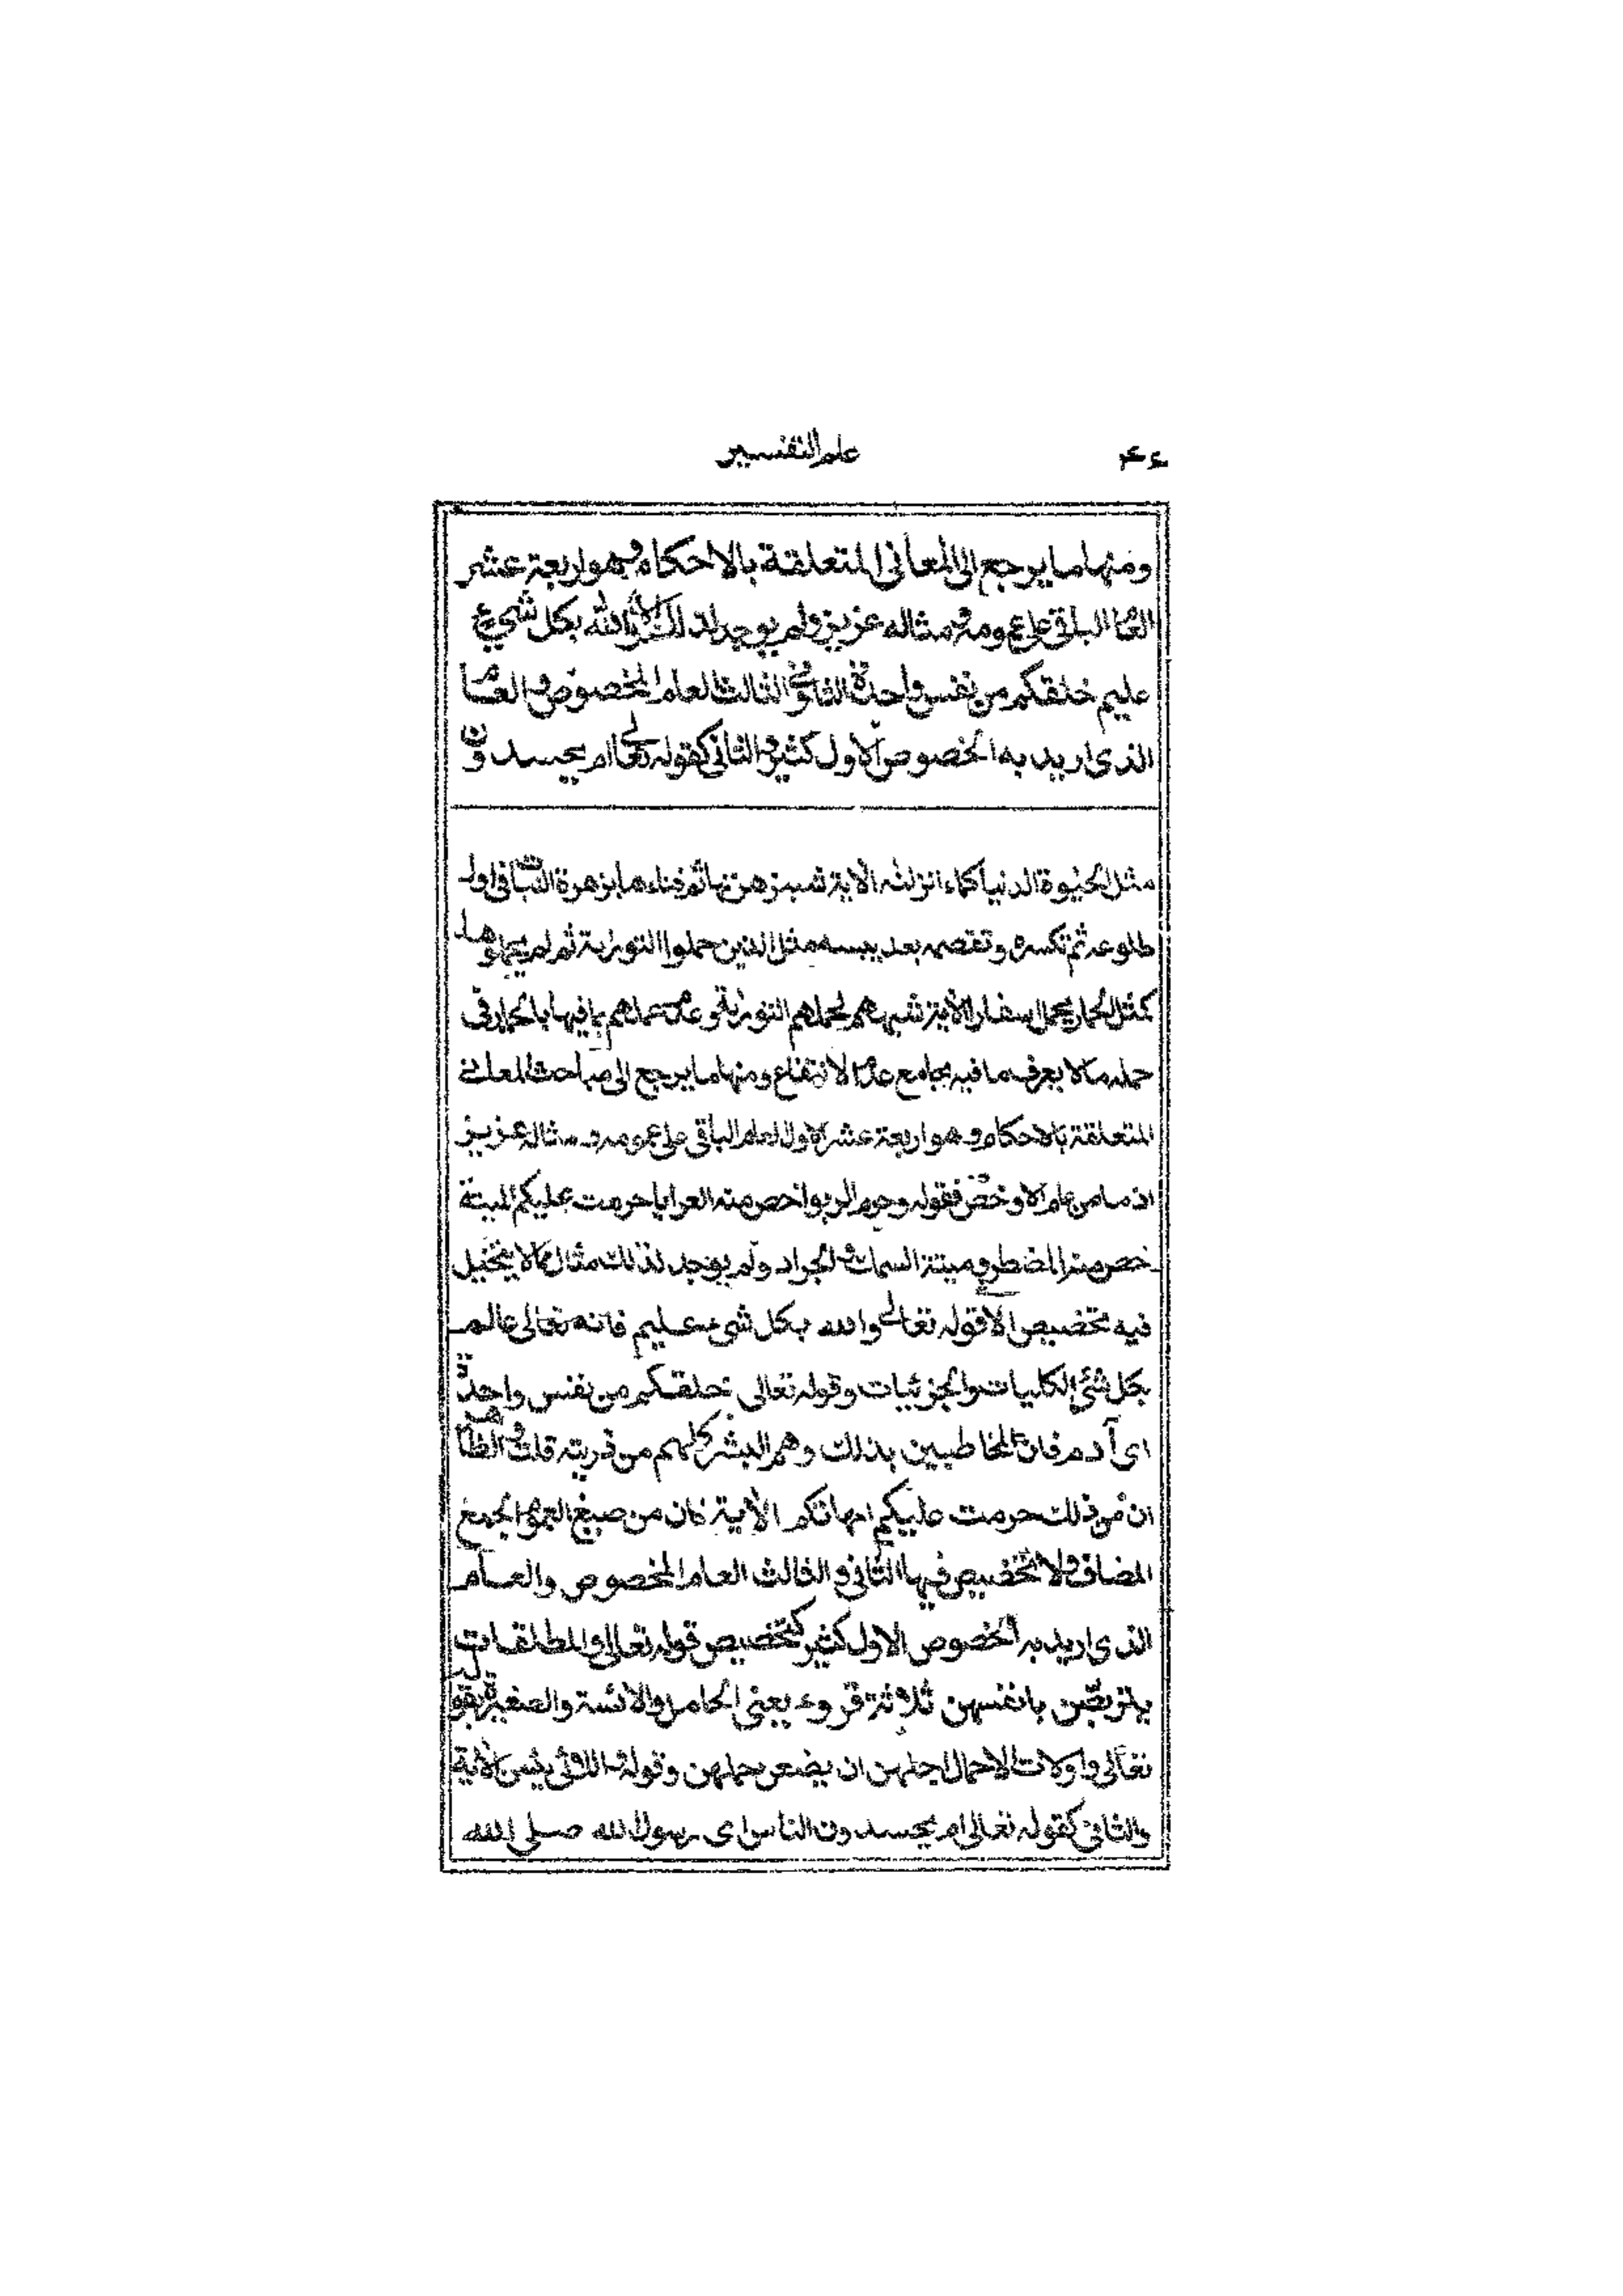 علم التفسير
۴۴
ومنها ما يرجع الى المعانى المتعلقة بالاحكام وهو اربعة عشر
العام الباقى على عمومه ومثاله عزيز ولم يوجد لذلك الا والله بكل شيء
عليم خلقكم من نفس واحدة الثانى والثالث العام المخصوص والعام
الذى اريد به الخصوص الاول كثير والثانى كقوله تعالى ام يحسدون
مثل الحيوة الدنيا كماء انزلنه الاية شبه زهرتها ثم فناءها بزهرة النبات فى اول
طلوعه ثم تكسره وتقصمه بعد يبسه مثل الذين حملوا التورىة ثم لم يحملوها
كمثل الحمار يحمل اسفارا الاية شبههم لحملهم التورىة وعدم عملهم بما فيها بالحمار فى
حمله ما لا يعرف ما فيه بجامع عدم الانتفاع ومنها ما يرجع الى مباحث المعانى
المتعلقة بالاحكام وهو اربعة عشر الاول العام الباقى على عمومه ومثاله عزيز
اذ ما من عام الا وخص فقوله وحرم الربوا خص منه العرايا حرمت عليكم الميتة
خص منه المضطر وميتة السمك والجراد ولم يوجد لذلك مثال مما لا يتخيل
فيه تخصيص الا قوله تعالى والله بكل شىء عليم فانه تعالى عالم
بكل شئ الكليات والجزئيات وقوله تعالى خلقكم من نفس واحدة
اى آدم فان المخاطبين بذلك وهم البشر كلهم من ذريته قلت والظاهر
ان من ذلك حرمت عليكم امهاتكم الاية فان من صيغ العموم الجمع
المضاف ولا تخصيص فيها الثانى و الثالث العام المخصوص والعام
الذى اريد به الخصوص الاول كثير كتخصيص قوله تعالى والمطلقات
يتربصن بانفسهن ثلاثة قروء يعنى الحامل والآئسة والصغيرة بقوله
تعالى واولات الاحمال اجلهن ان يضعن حملهن وقوله والئى يئسن الاية
والثانى كقوله تعالى ام يحسدون الناس اى رسول الله صلى الله